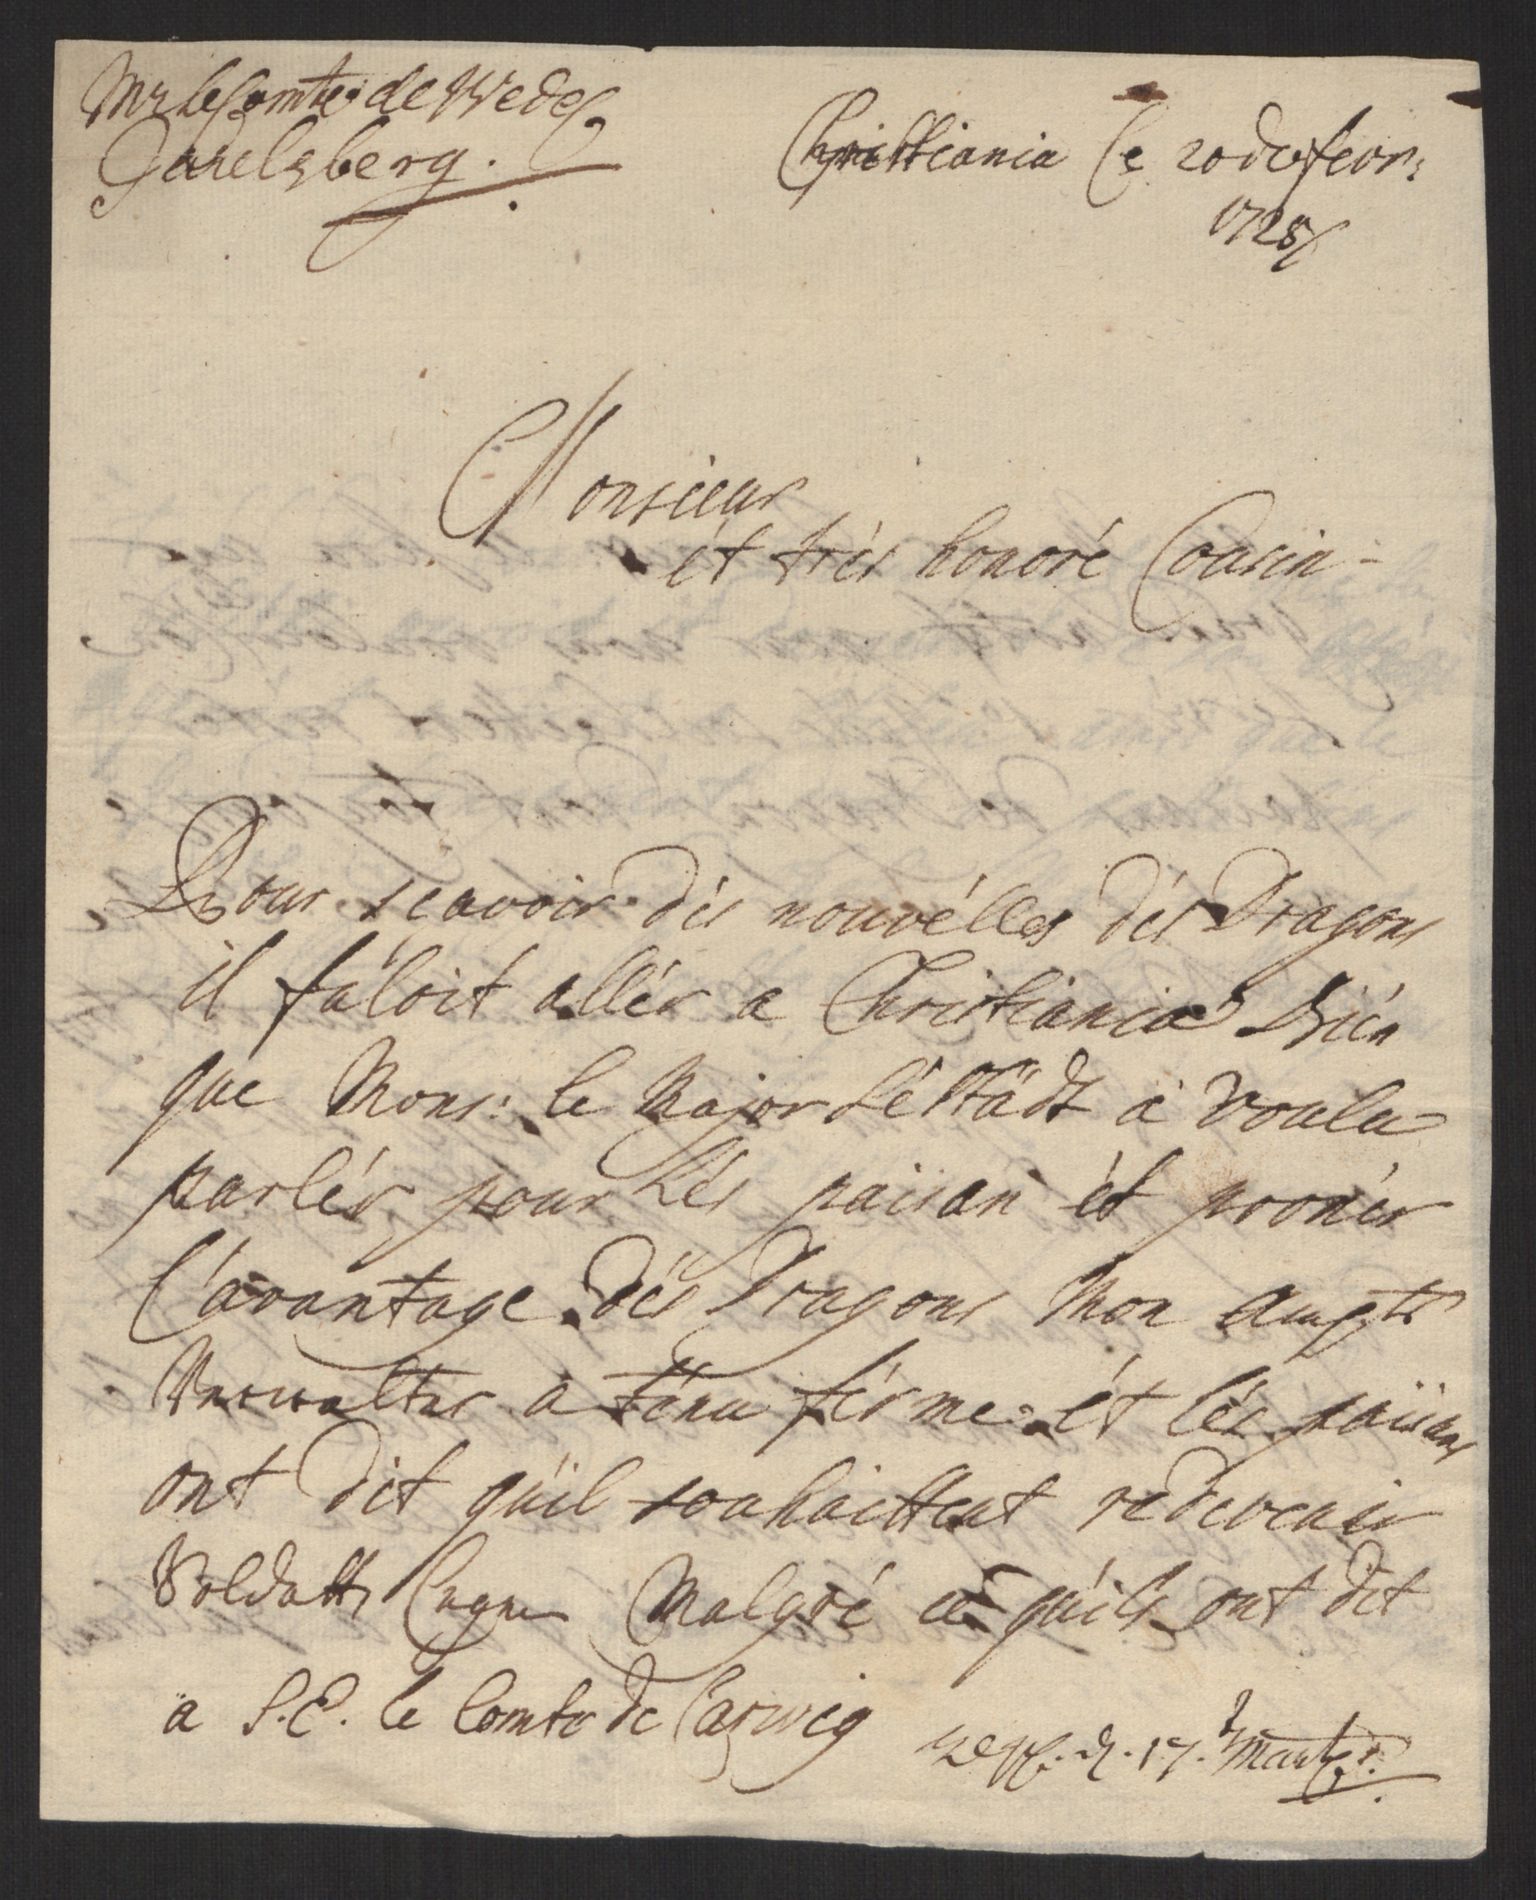 Mr le Comte de Wedel
Jarelsberg.
Christiania Ce 20 de fevr:
1728
Monsieur
ét trés honoré Cousin
Pour scavoir dés nouvélles dés Dragons
il faloit allér a Christiania bién
que Mons: le Major séstädt à voulu
parlér pour Lés paisan ét pronér
l'avantage dés Dragons Mon Ampts
Verwalter a ténu férme ét lés païsans
ont dit qu'il souhaittent redevenir
Soldatts Malgré cé qu'ils ont dit
a S.E. le Comte de Larwig
d. 17. Martz.